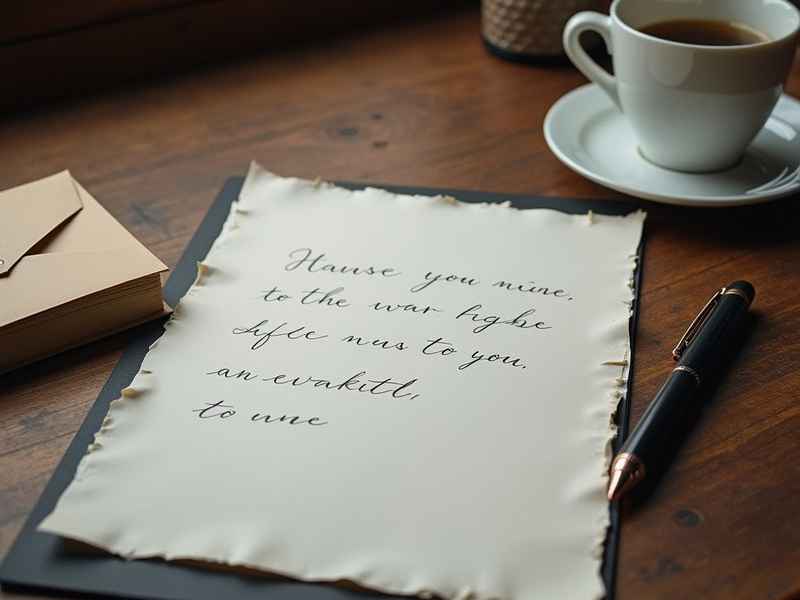 Hause you mine.
to the war hgbe
lifle nus to you.
an evakitl,
to une